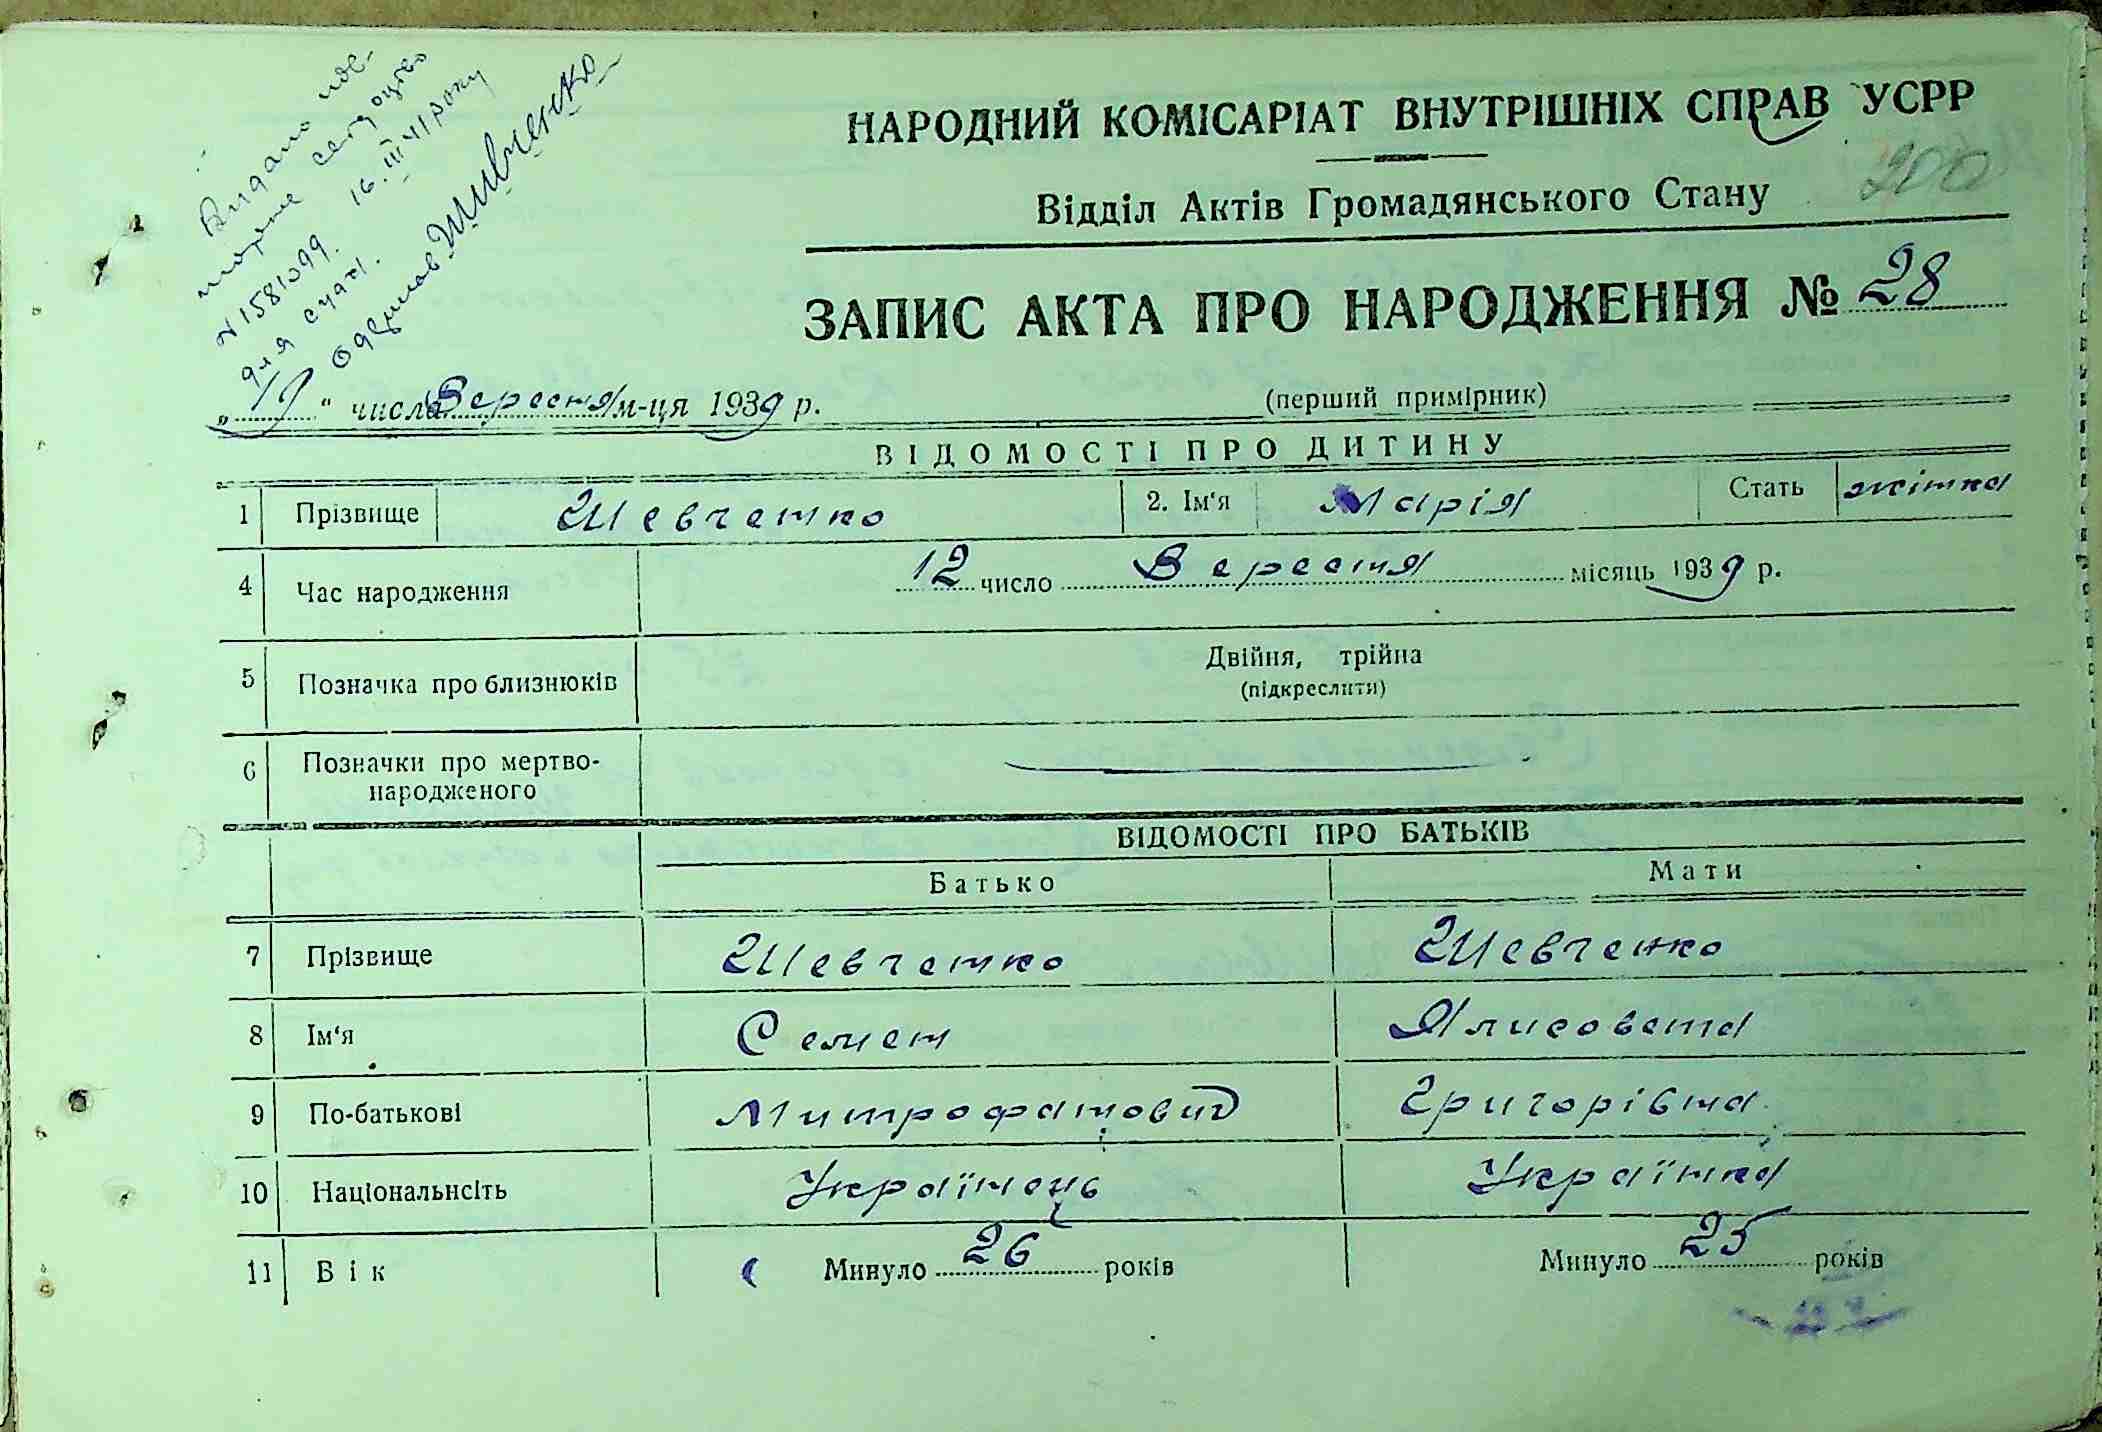 Видано пов-
торне свідоцтво
№1581099. 16.III 41 року
для судді.
Одержав Шивченко
НАРОДНИЙ КОМІСАРІАТ ВНУТРІШНІХ СПРАВ УСРР
200
Відділ Актів Громадянського Стану
ЗАПИС АКТА ПРО НАРОДЖЕННЯ № 28
„19“ числа Вересня м-ця 1939 р. (перший примірник)
ВІДОМОСТІ ПРО ДИТИНУ
1 Прізвище Шевченко 2. Ім'я Марія Стать жінка
4 Час народження 12 число Вересня місяць 1939 р.
5 Позначка про близнюків Двійня, трійна
(підкреслити)
6 Позначки про мертво-
народженого
ВІДОМОСТІ ПРО БАТЬКІВ
Батько Мати
7 Прізвище Шевченко Шевченко
8 Ім'я Семен Ялисовета
9 По-батькові Митрофанович Григорівна
10 Національнсіть Українець Українка
11 Вік Минуло 26 років Минуло 25 років